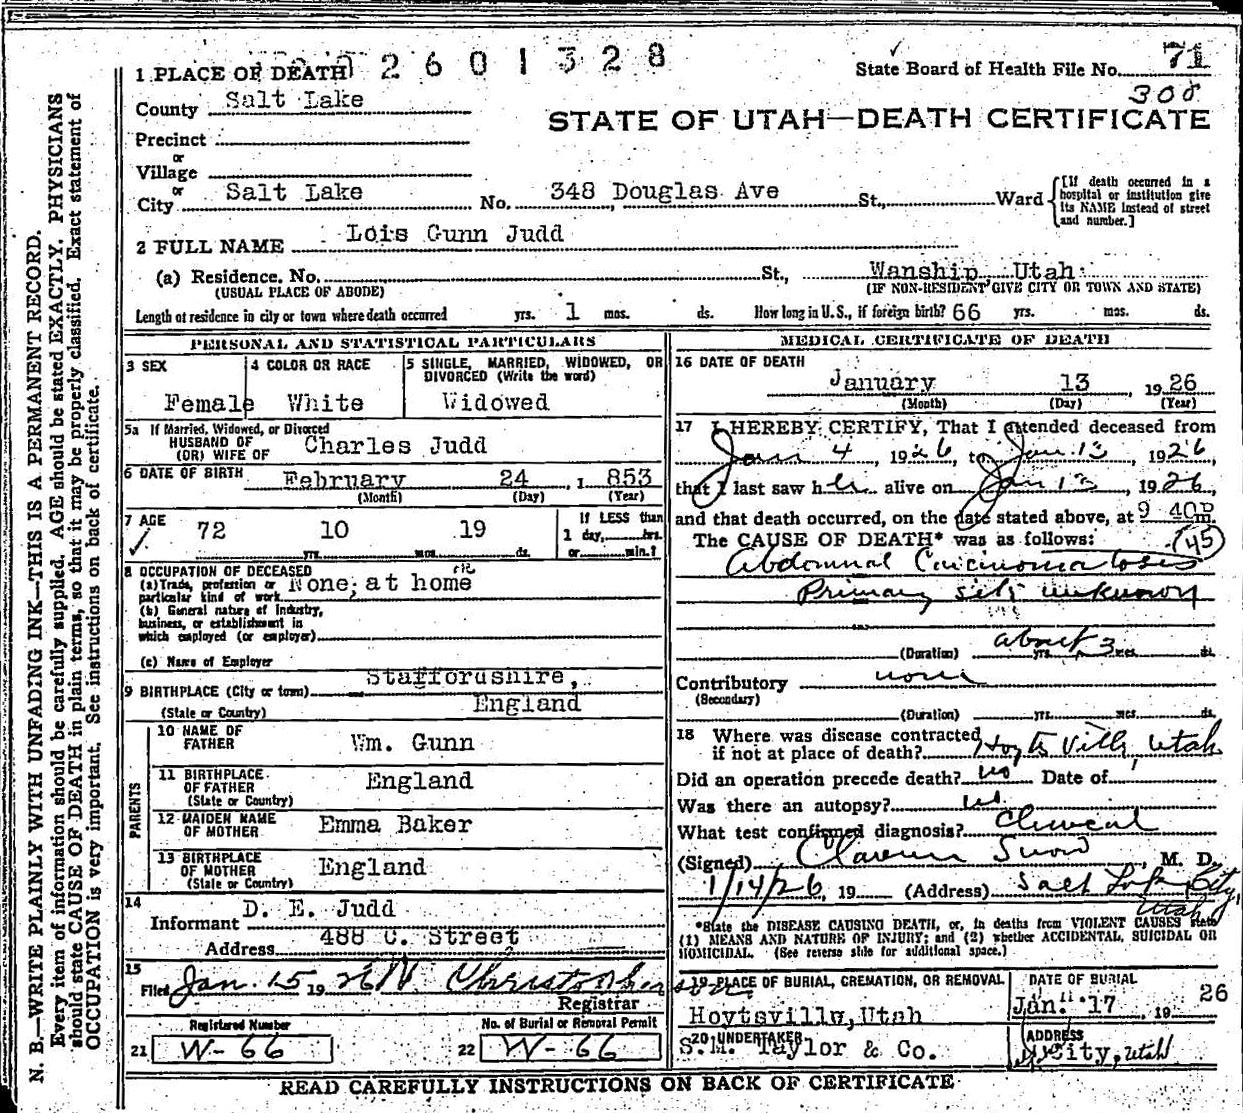 2601328
1 PLACE OF DEATH
State Board of Health File No. 71
308
County Salt Lake
STATE OF UTAH—DEATH CERTIFICATE
Precinct
or
Village
or
City Salt Lake No. 348 Douglas Ave St., Ward
[If death occurred in a hospital or institution give its NAME instead of street and number.]
2 FULL NAME Lois Gunn Judd
(a) Residence, No. St., Wanship, Utah
(USUAL PLACE OF ABODE) (IF NON-RESIDENT GIVE CITY OR TOWN AND STATE)
Length of residence in city or town where death occurred yrs. 1 mos. ds. How long in U.S., if foreign birth? 66 yrs. mos. ds.
PERSONAL AND STATISTICAL PARTICULARS
3 SEX
Female
4 COLOR OR RACE
White
5 SINGLE, MARRIED, WIDOWED, OR
DIVORCED (Write the word)
Widowed
5a If Married, Widowed, or Divorced
HUSBAND OF
(OR) WIFE OF Charles Judd
6 DATE OF BIRTH February 24, 1853
(Month) (Day) (Year)
7 AGE
72 yrs. 10 mos. 19 ds.
If LESS than
1 day, hrs.
or min.?
8 OCCUPATION OF DECEASED
(a) Trade, profession or
particular kind of work None; at home
(b) General nature of Industry,
business, or establishment in
which employed (or employer)
(c) Name of Employer
9 BIRTHPLACE (City or town) Staffordshire,
(State or Country) England
PARENTS
10 NAME OF
FATHER Wm. Gunn
11 BIRTHPLACE
OF FATHER England
(State or Country)
12 MAIDEN NAME
OF MOTHER Emma Baker
13 BIRTHPLACE
OF MOTHER England
(State or Country)
14
Informant D. E. Judd
Address 488 C. Street
15
Filed Jan. 15 1926 N Christopherson
Registrar
Registered Number
21 W-66
No. of Burial or Removal Permit
22 W-66
MEDICAL CERTIFICATE OF DEATH
16 DATE OF DEATH
January 13, 1926
(Month) (Day) (Year)
17 I HEREBY CERTIFY, That I attended deceased from
Jan 4, 1926, to Jan. 13, 1926,
that I last saw her alive on Jan 13, 1926,
and that death occurred, on the date stated above, at 9 40P m.
The CAUSE OF DEATH* was as follows: 45
Abdominal Carcinomatosis
Primary site unknown
about 3
(Duration) yrs. mos. ds.
Contributory none
(Secondary)
(Duration) yrs. mos. ds.
18 Where was disease contracted
if not at place of death? Hoytsville, Utah
Did an operation precede death? no Date of
Was there an autopsy? no
What test confirmed diagnosis? Clinical
(Signed) Clarence Snow, M. D.
1/14/26, 19 (Address) Salt Lake City,
Utah
*State the DISEASE CAUSING DEATH, or, in deaths from VIOLENT CAUSES state
(1) MEANS AND NATURE OF INJURY; and (2) whether ACCIDENTAL, SUICIDAL OR
HOMICIDAL. (See reverse side for additional space.)
19 PLACE OF BURIAL, CREMATION, OR REMOVAL
Hoytsville, Utah
DATE OF BURIAL
Jan. 17, 1926
20 UNDERTAKER
S.M. Taylor & Co.
ADDRESS
City, Utah
READ CAREFULLY INSTRUCTIONS ON BACK OF CERTIFICATE
N. B.—WRITE PLAINLY WITH UNFADING INK—THIS IS A PERMANENT RECORD.
Every item of information should be carefully supplied. AGE should be stated EXACTLY. PHYSICIANS
should state CAUSE OF DEATH in plain terms, so that it may be properly classified. Exact statement of
OCCUPATION is very important. See instructions on back of certificate.